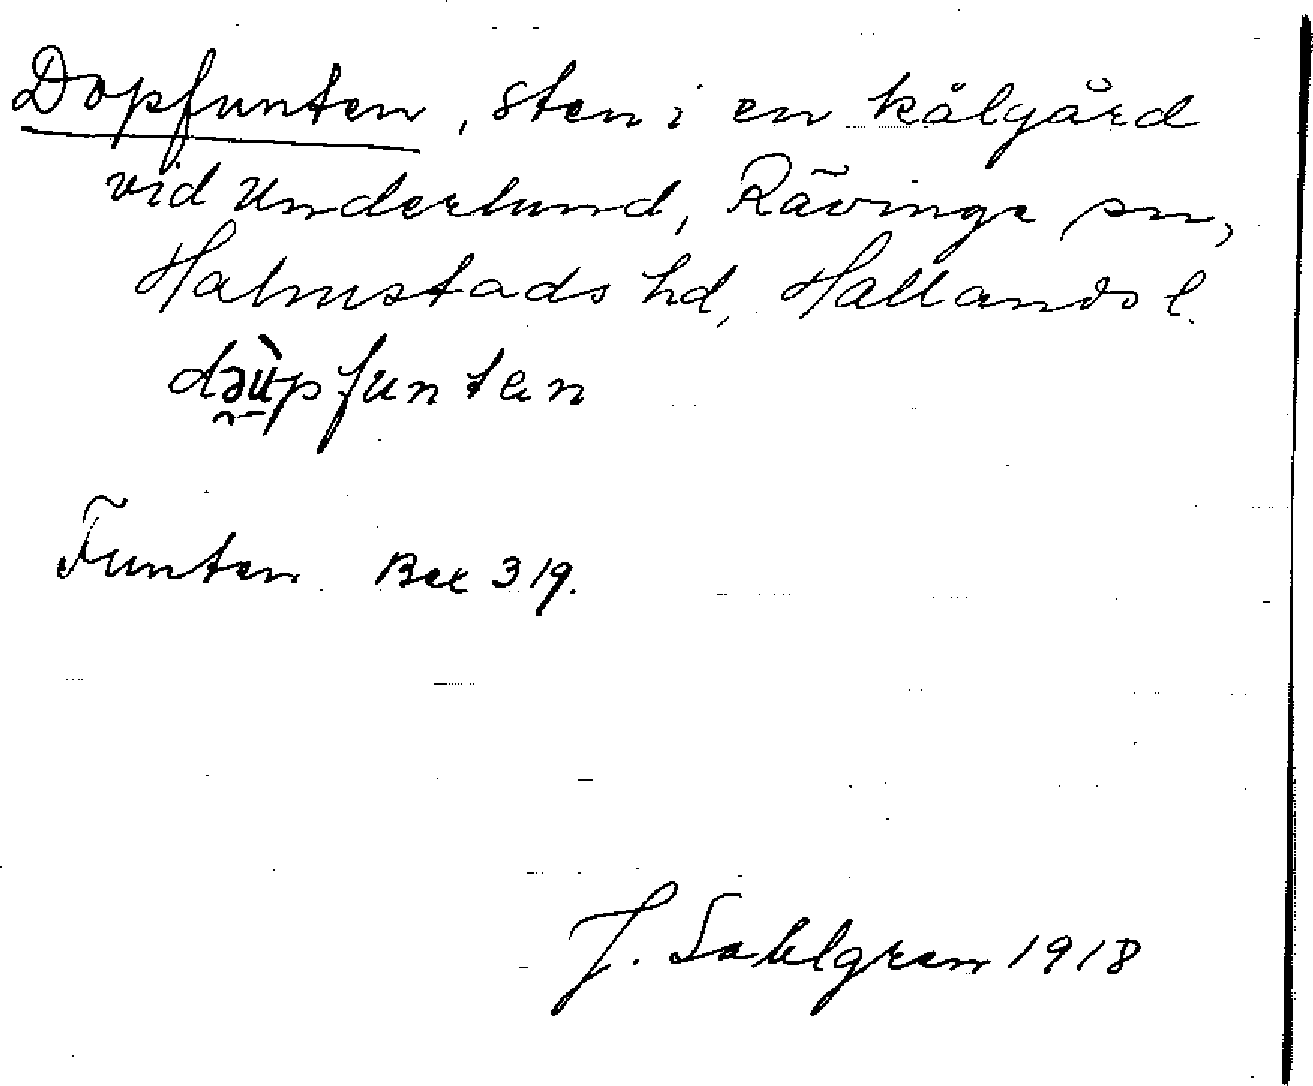 Dopfunten, sten i en kålgård
vid Underlund, Rävinge sn,
Halmstads hd, Hallands l.
dəu̇pfuntən
Funten. Bex 319.
J. Sahlgren 1918